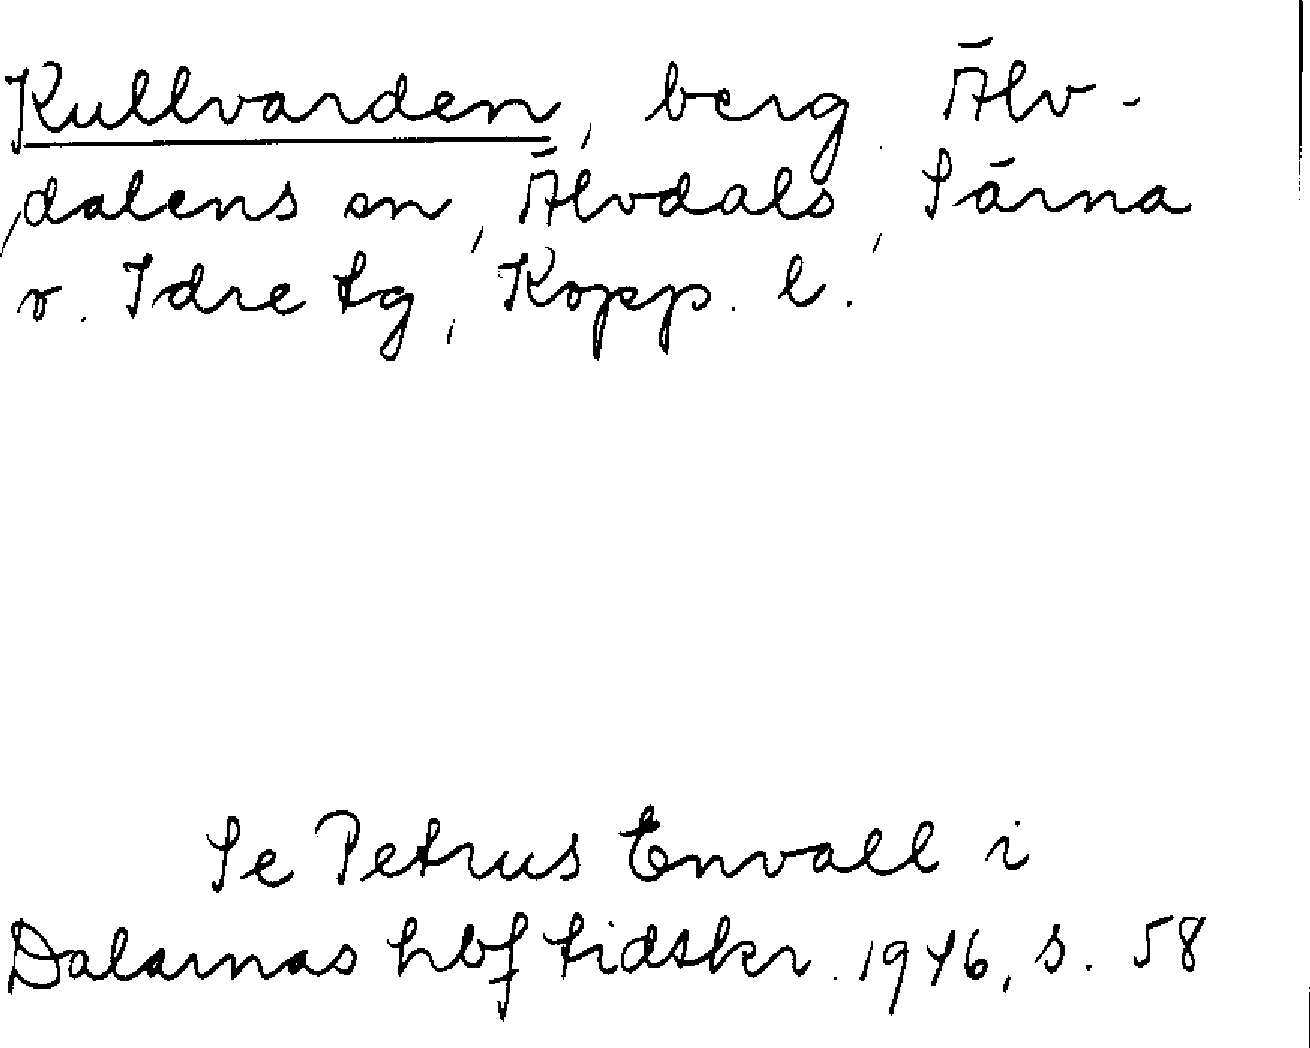 Kullvarden, berg, Älv-
dalens sn, Älvdals, Särna
o. Idre tg, Kopp. l.
Se Petrus Envall i
Dalarnas hbf tidskr. 1946, s. 58